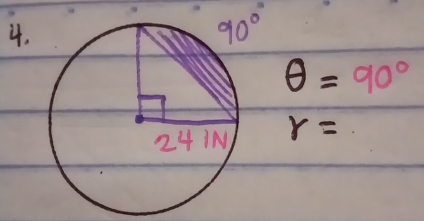 4.
90°
θ = 90°
24 IN
r =